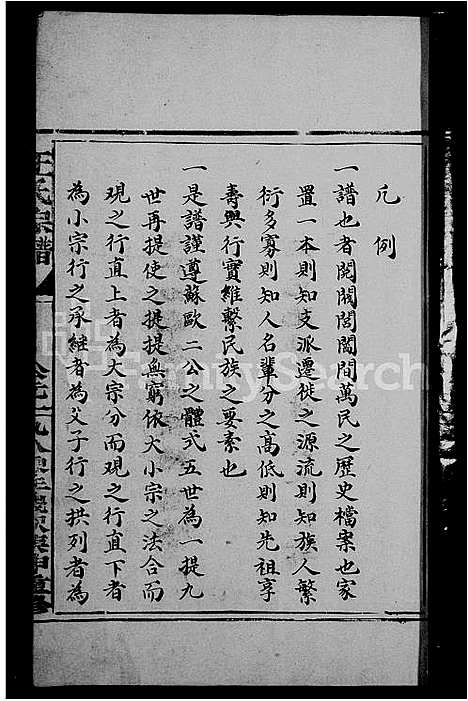 凡例
一譜也者閱閥閭閻間萬民之歷史檔案也家
置一本則知支派遷徙之源流則知族人繁
衍多寡則知人名輩分之高低則知先祖享
壽與行實維繫民族之要素也
一是譜謹遵蘇歐二公之體式五世為一提九
世再提使之提提無窮依大小宗之法合而
观之行直上者為大宗分而观之行直下者
為小宗行之承継者為父子行之拱列者為
氏宗譜
FamilySearch